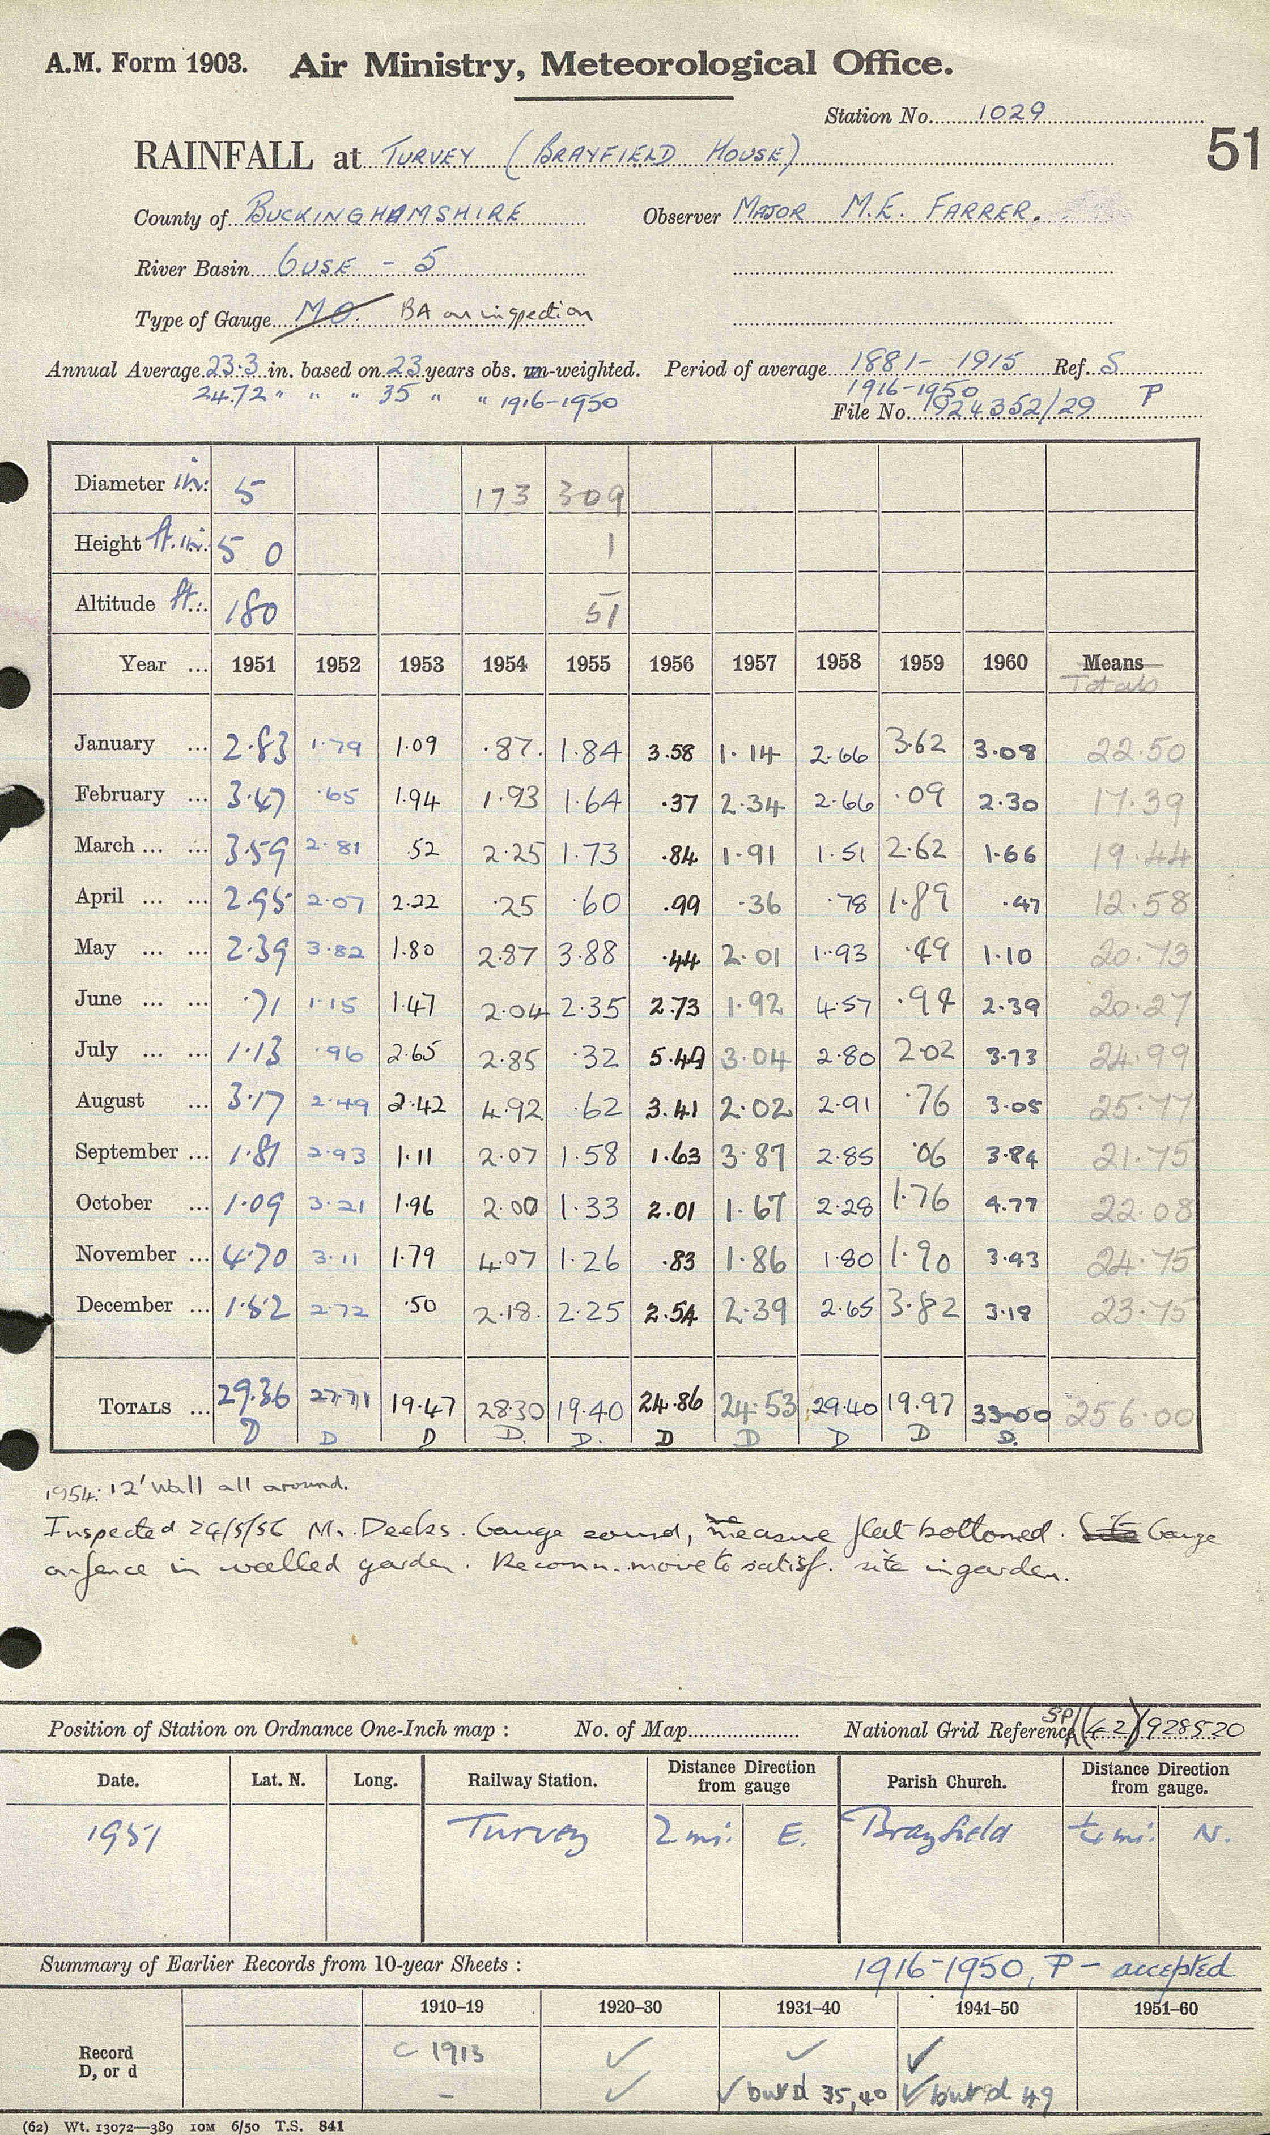 A.M. Form 1903. Air Ministry, Meteorological Office.
Station No. 1029
51
RAINFALL at TURVEY (BRAYFIELD HOUSE)
County of BUCKINGHAMSHIRE Observer MAJOR M.E. FARRER.
River Basin OUSE - 5
Type of Gauge M O. BA on inspection
Annual Average 23.3 in. based on 23 years obs. un-weighted. Period of average 1881-1915 Ref. S
24.72 " " " 35 " " 1916-1950 1916-1950 P
File No. 924352/29
Diameter in: 5 173 309
Height ft. in: 5 0 1
Altitude ft.: 180 51
Year ... 1951 1952 1953 1954 1955 1956 1957 1958 1959 1960 Means
Totals
January ... 2.83 1.79 1.09 .87 1.84 3.58 1.14 2.66 3.62 3.08 22.50
February ... 3.47 .65 1.94 1.93 1.64 .37 2.34 2.66 .09 2.30 17.39
March ... ... 3.59 2.81 .52 2.25 1.73 .84 1.91 1.51 2.62 1.66 19.44
April ... ... 2.95 2.07 2.22 .25 .60 .99 .36 .78 1.89 .47 12.58
May ... ... 2.39 3.82 1.80 2.87 3.88 .44 2.01 1.93 .49 1.10 20.73
June ... ... .71 1.15 1.47 2.04 2.35 2.73 1.92 4.57 .94 2.39 20.27
July ... ... 1.13 .96 2.65 2.85 .32 5.49 3.04 2.80 2.02 3.73 24.99
August ... 3.17 2.49 2.42 4.92 .62 3.41 2.02 2.91 .76 3.05 25.77
September ... 1.81 2.93 1.11 2.07 1.58 1.63 3.87 2.85 .06 3.84 21.75
October ... 1.09 3.21 1.96 2.00 1.33 2.01 1.67 2.28 1.76 4.77 22.08
November ... 4.70 3.11 1.79 4.07 1.26 .83 1.86 1.80 1.90 3.43 24.75
December ... 1.52 2.72 .50 2.18 2.25 2.54 2.39 2.65 3.82 3.18 23.75
TOTALS ... 29.36 27.71 19.47 28.30 19.40 24.86 24.53 29.40 19.97 33.00 256.00
D D D D. D. D D D D D.
1954: 12' Wall all around.
Inspected 24/5/56 Mr. Deeks. Gauge sound, measure flat bottomed. Site Gauge
on fence in walled garden. Recomm. move to satisf. site in garden.
Position of Station on Ordnance One-Inch map : No. of Map National Grid Reference SP (42) 928520
Date. Lat. N. Long. Railway Station. Distance Direction from gauge Parish Church. Distance Direction from gauge.
1951 Turvey 2 mi: E. Brayfield ¼ mi: N.
Summary of Earlier Records from 10-year Sheets : 1916-1950, P - accepted
1910–19 1920–30 1931–40 1941–50 1951–60
Record c 1913 ✓ ✓ ✓
D, or d – ✓ ✓ but d 35, 40 ✓ but d 49
(62) Wt. 13072—389 10M 6/50 T.S. 841